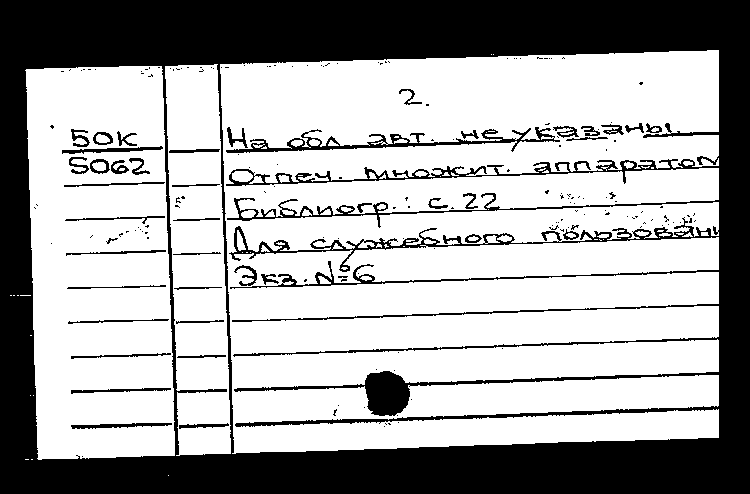 2.
50К На обл. авт. не указаны.
5062 Отпеч. множит. аппаратом
Библиогр.: с. 22
Для служебного пользовани
Экз. №6